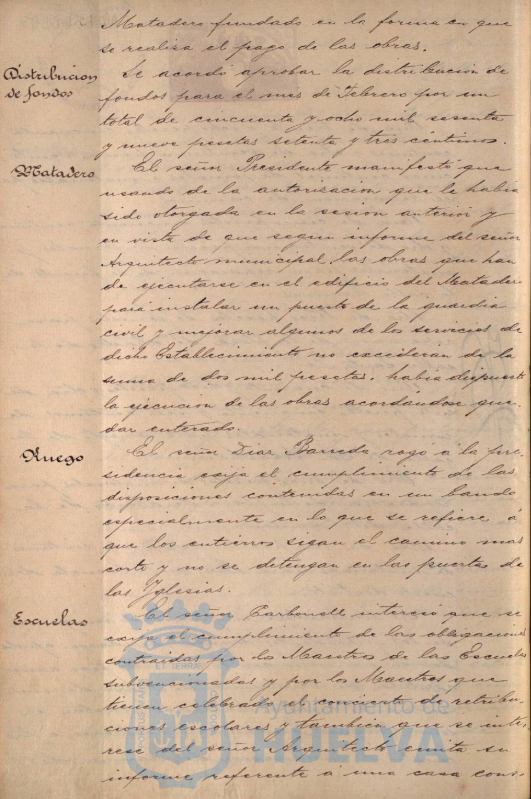 Matadero fundado en la forma en que
se realiza el pago de las obras.
Distribucion
de fondos
Se acordó aprobar la distribucion de
fondos para el mes de Febrero por un
total de cincuenta y ocho mil sesenta
y nueve pesetas setenta y tres céntimos.
Matadero
El señor Presidente manifestó que
usando de la autorizacion que le habia
sido otorgada en la sesion anterior y
en vista de que segun informe del señor
Arquitecto municipal, las obras que han
de ejecutarse en el edificio del Matadero
para instalar un puesto de la guardia
civil y mejorar algunos de los servicios de
dicho Establecimiento no excederán de la
suma de dos mil pesetas, habia dispuesto
la ejecucion de las obras acordándose que-
dar enterado.
Ruego
El señor Diaz Barreda rogó á la pre-
sidencia exija el cumplimiento de las
disposiciones contenidas en un bando
especialmente en lo que se refiere á
que los entierros sigan el camino mas
corto y no se detengan en las puertas de
las Yglesias.
Escuelas
El señor Carbonell interesó que se
exija el cumplimiento de las obligaciones
contraidas por los Maestros de las Escuelas
subvencionadas y por los Maestros que
tienen celebrado el convenio de retribu-
ciones escolares y tambien que se inte-
rese del señor Arquitecto emita su
informe referente á una casa cons-
Ayuntamiento de
HUELVA